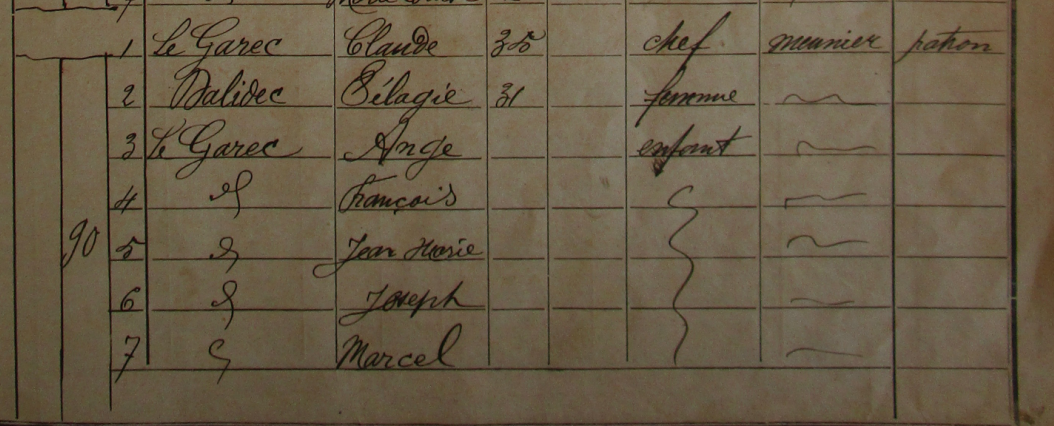 1 Le Garec Claude 35 chef meunier patron
2 Dalidec Pélagie 31 femme
3 Le Garec Ange enfant
4 François
90
5 Jean Marie
6 Joseph
7 Marcel